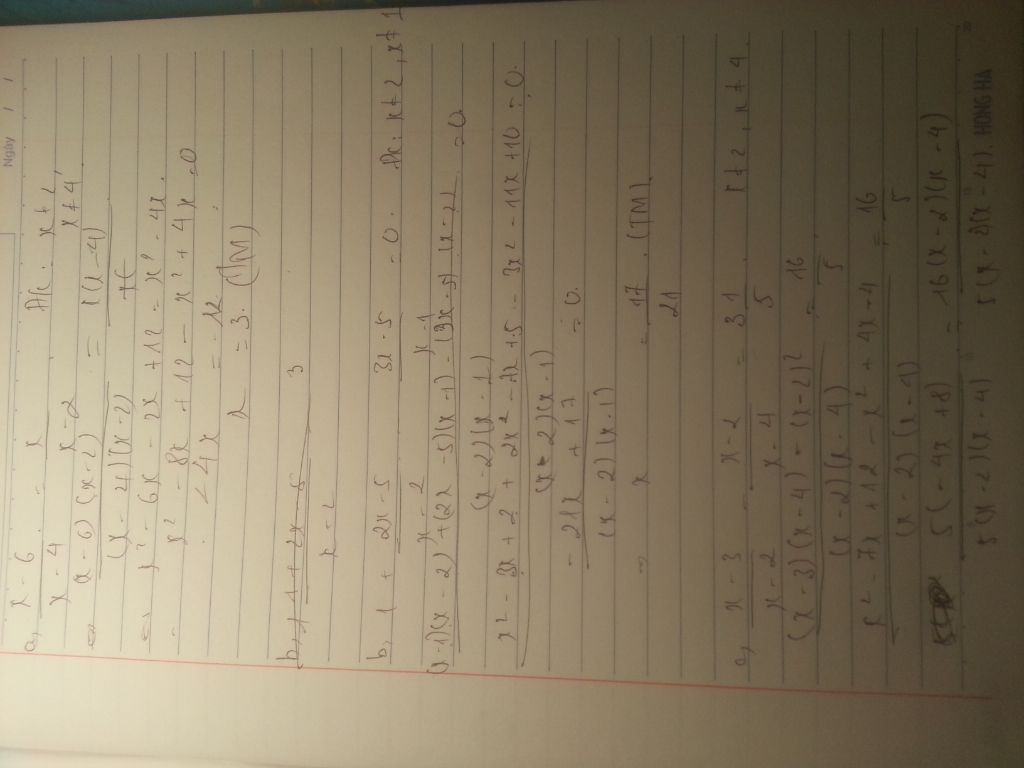 Ngày
a, x - 6 / x - 4 = x / x - 2 Đk: x ≠ 2, x ≠ 4
⇔ (x - 6)(x - 2) / (x - 4)(x - 2) = x(x - 4)
⇔ x² - 6x - 2x + 12 = x² - 4x.
x² - 8x + 12 - x² + 4x = 0
- 4x = - 12
x = 3. (TM)
b, 1 + 2x - 5 / x - 2 - 3x - 5 / x - 1 = 0. Đk: x ≠ 2, x ≠ 1
(x - 1)(x - 2) + (2x - 5)(x - 1) - (3x - 5)(x - 2) / (x - 2)(x - 1) = 0
x² - 3x + 2 + 2x² - 7x + 5 - 3x² - 11x + 10 / (x - 2)(x - 1) = 0.
- 21x + 17 / (x - 2)(x - 1) = 0.
⇒ x = 17 / 21 (TM)
c, x - 3 / x - 2 - x - 2 / x - 4 = 3 1 / 5 x ≠ 2, x ≠ 4
(x - 3)(x - 4) - (x - 2)² / (x - 2)(x - 4) = 16 / 5
x² - 7x + 12 - x² + 4x - 4 / (x - 2)(x - 4) = 16 / 5
5(- 4x + 8) / 5(x - 2)(x - 4) = 16(x - 2)(x - 4) / 5(x - 2)(x - 4).
HONG HA